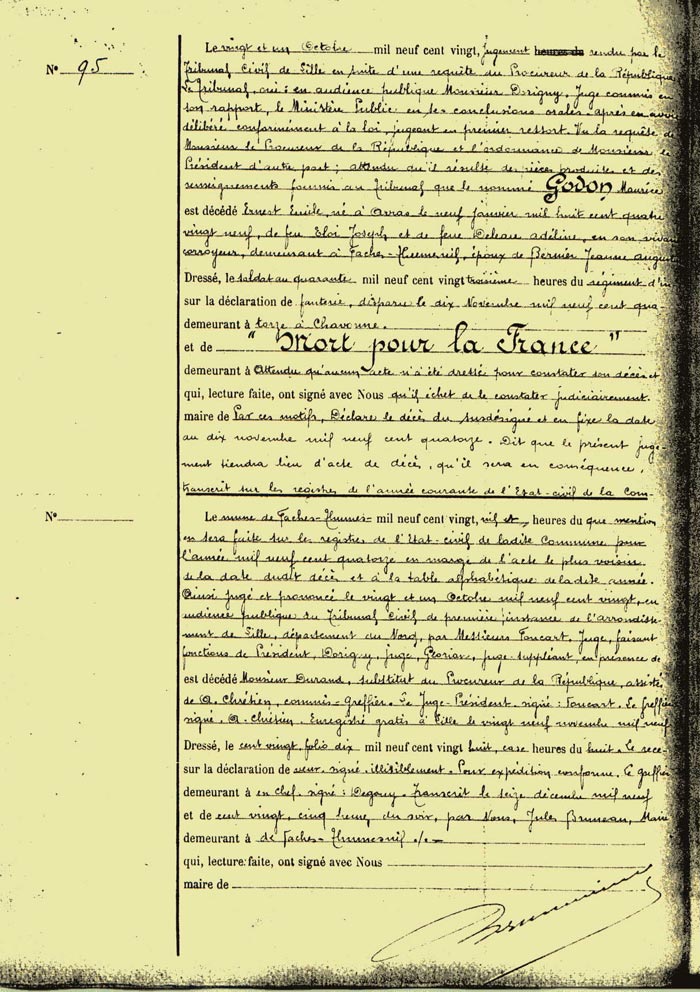 Le vingt et un Octobre mil neuf cent vingt, Jugement heures du rendu par le
N° 95
Tribunal Civil de Lille en suite d'une requête du Procureur de la République
Le Tribunal, oui : en audience publique Monsieur Dorigny, Juge commis en
son rapport, le Ministère Public en ses conclusions orales après en avoir
délibéré conformément à la loi, jugeant en premier ressort. Vu la requête de
Monsieur le Procureur de la République et l'ordonnance de Monsieur le
Président d'autre part ; attendu qu'il résulte des pièces produites et des
renseignements fournis au Tribunal que le nommé Godon Maurice
est décédé Ernest Emile, né à Arras le neuf Janvier mil huit cent quatre
vingt neuf, de feu Eloi Joseph et de feue Deleau Adéline, en son vivant
corroyeur, demeurant à Faches-Thumesnil, époux de Bernier Jeanne August
Dressé, le soldat au quarante mil neuf cent vingt troisième heures du régiment d'in
sur la déclaration de fanterie, disparu le dix Novembre mil neuf cent qua
demeurant à torze à Chavonne.
et de "Mort pour la France"
demeurant à Attendu qu'aucun acte n'a été dressé pour constater son décès et
qui, lecture faite, ont signé avec Nous qu'il échet de le constater judiciairement.
maire de Par ces motifs, Déclare le décès du susdésigné et en fixe la date
au dix novembre mil neuf cent quatorze. Dit que le présent juge-
ment tiendra lieu d'acte de décès, qu'il sera en conséquence,
transcrit sur les registres de l'année courante de l'Etat-civil de la Com-
N° Le mune de Faches-Thumes- mil neuf cent vingt, nil et heures du que mention
en sera faite sur les registres de l'Etat-civil de ladite Commune pour
l'année mil neuf cent quatorze en marge de l'acte le plus voisin
de la date dudit décès et à la table alphabétique de ladite année.
Ainsi jugé et prononcé le vingt et un Octobre mil neuf cent vingt, en
audience publique du Tribunal Civil de première instance de l'arrondisse-
ment de Lille, département du Nord, par Messieurs Foucart, Juge, faisant
fonctions de Président, Dorigny, juge, juge-suppléant, en présence de
est décédé Monsieur Durand, substitut du Procureur de la République, assisté
de A. Chrétien, commis-Greffier. Le Juge-Président. signé : Foucart. Le Greffier
signé. A. Chrétien. Enregistré gratis à Lille le vingt neuf novembre mil neuf
Dressé, le cent vingt, folio dix mil neuf cent vingt huit, case heures du huit. Le rece-
sur la déclaration de veur. signé. illisiblement. Pour expédition conforme. Le greffier
demeurant à en chef. signé : Degouy. Transcrit le seize décembre mil neuf
et de cent vingt, cinq heures du soir, par Nous, Jules Bruneau, Maire
demeurant à de Faches-Thumesnil ./.
qui, lecture faite, ont signé avec Nous
maire de